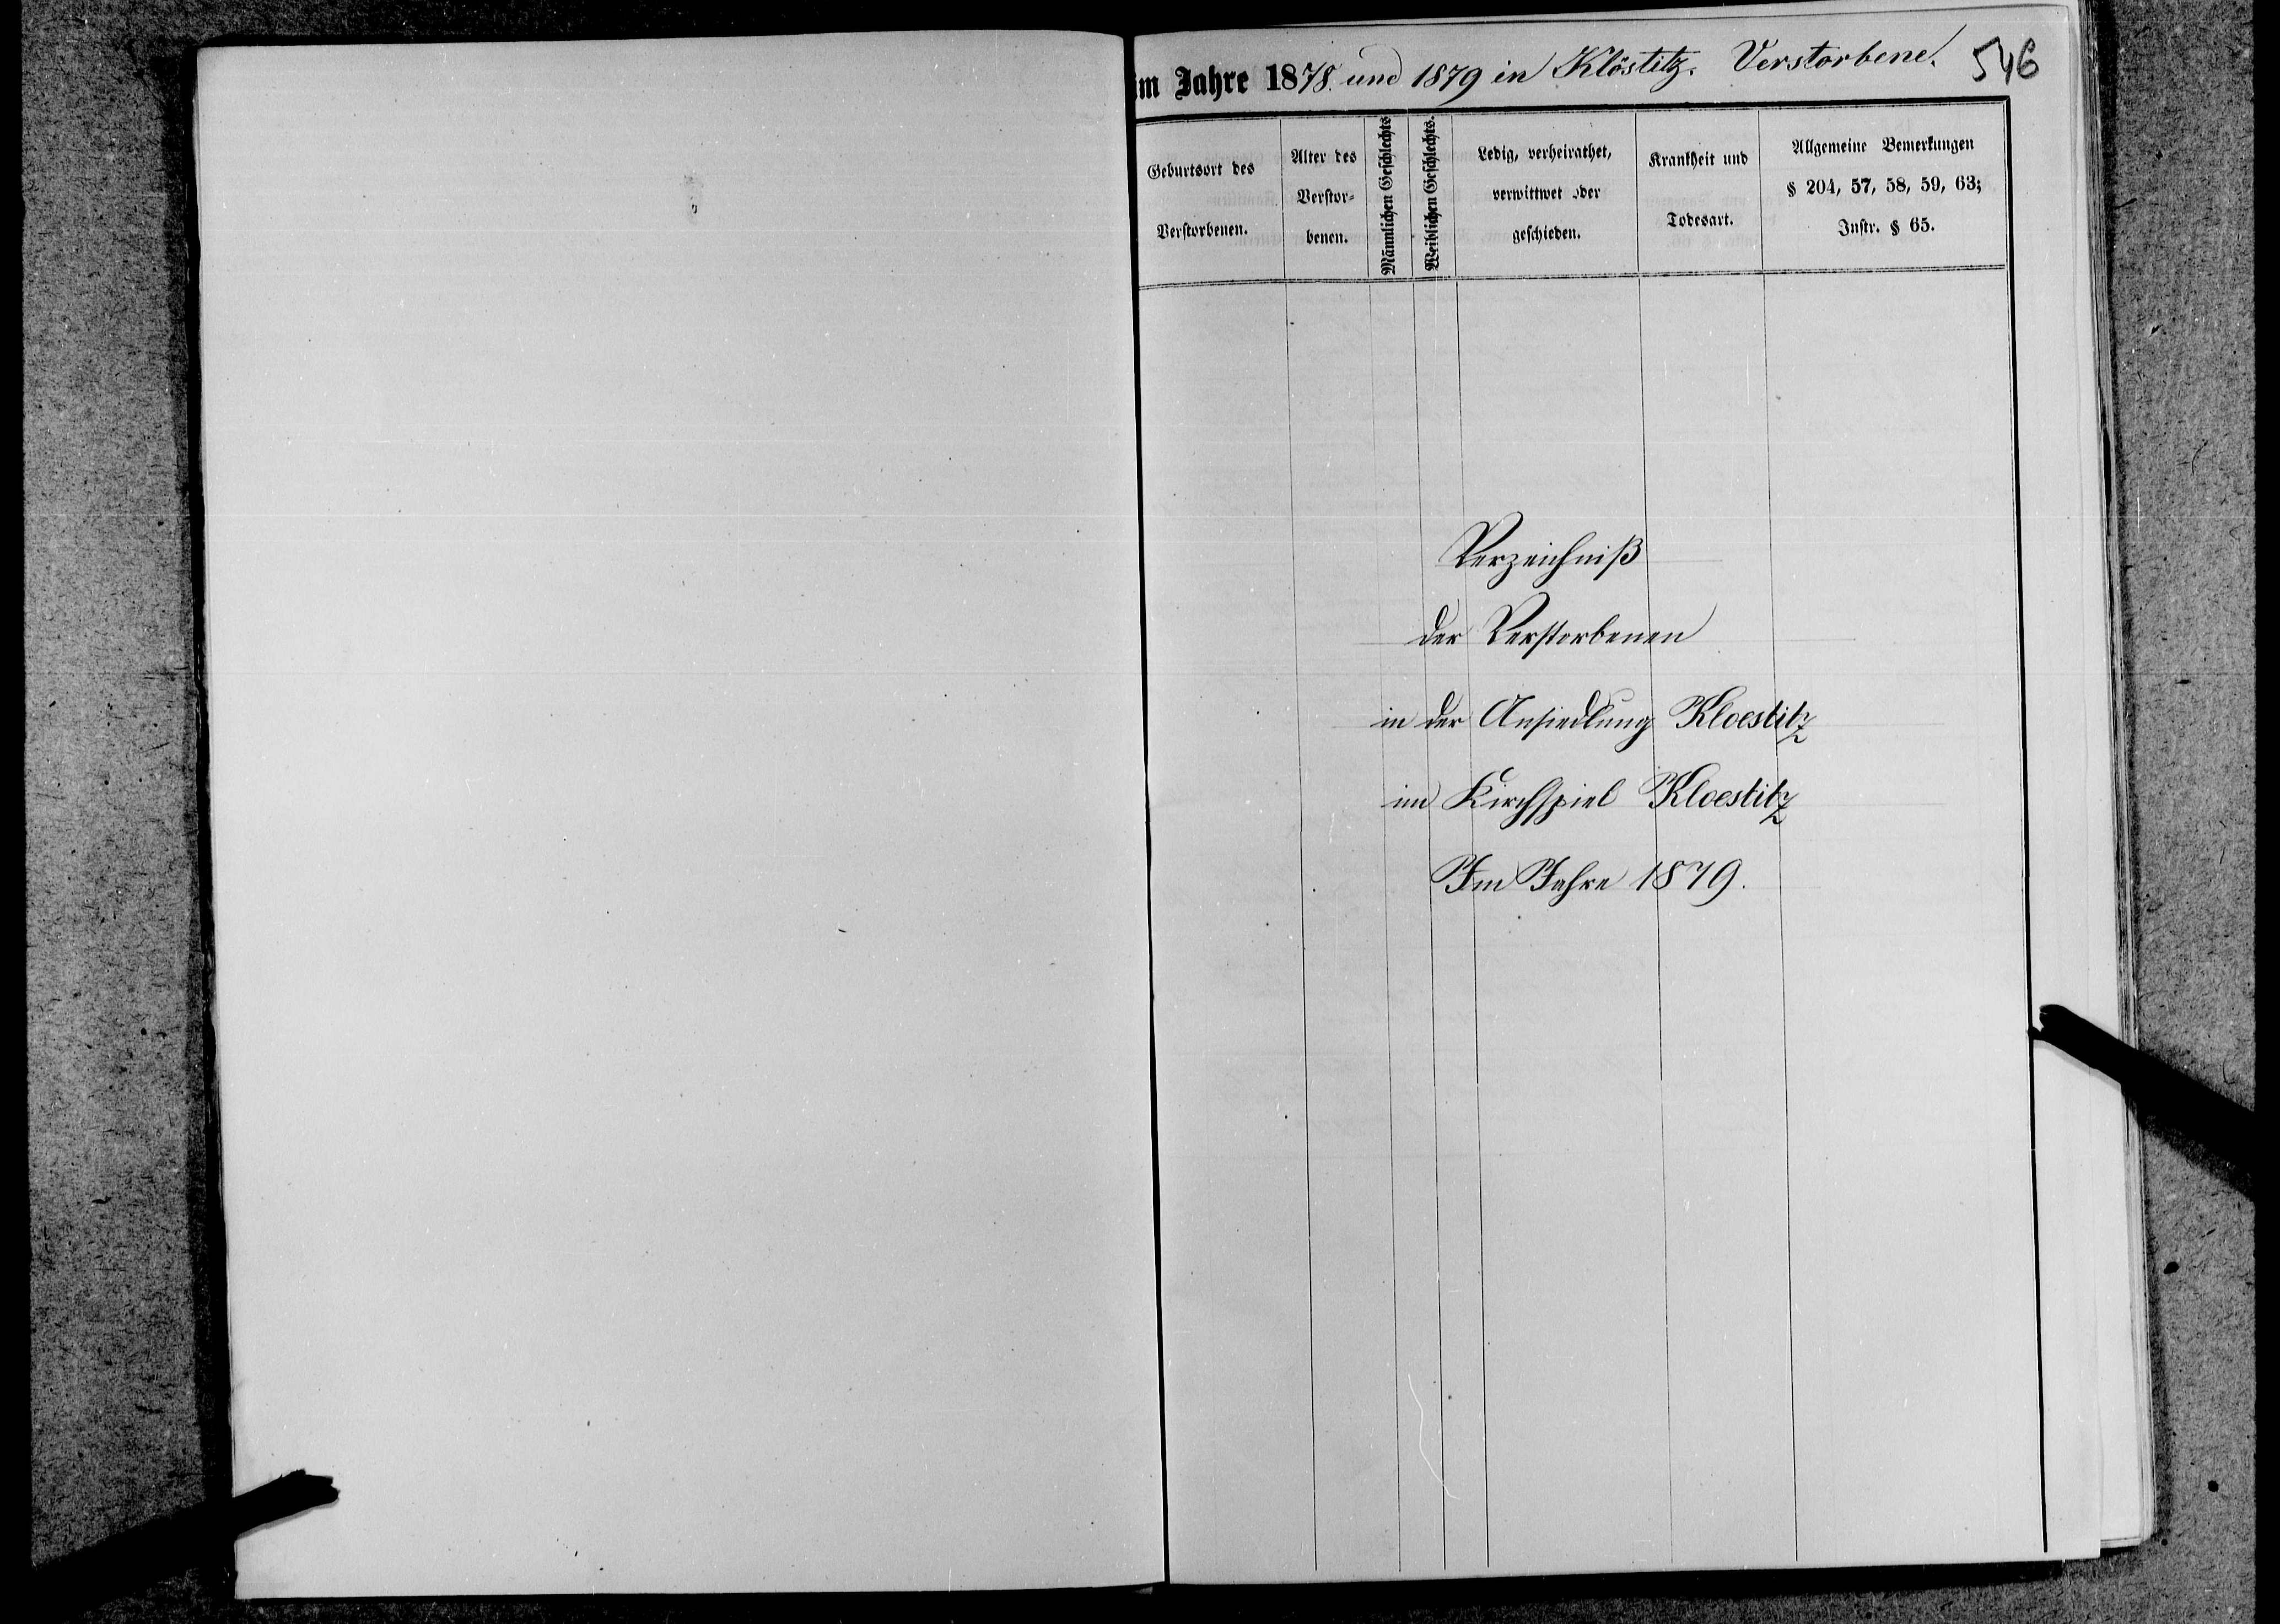 im Jahre 1878. und 1879 in Klöstitz. Verstorbene. 546
Geburtsort des
Verstorbenen.
Alter des
Verstor-
benen.
Männlichen Geschlechts
Weiblichen Geschlechts.
Ledig, verheirathet,
verwittwet oder
geschieden.
Krankheit und
Todesart.
Allgemeine Bemerkungen
§ 204, 57, 58, 59, 63;
Instr. § 65.
Verzeichniß
der Verstorbenen
in der Ansiedlung Kloestitz
im Kirchspiel Kloestitz
Im Jahre 1879.